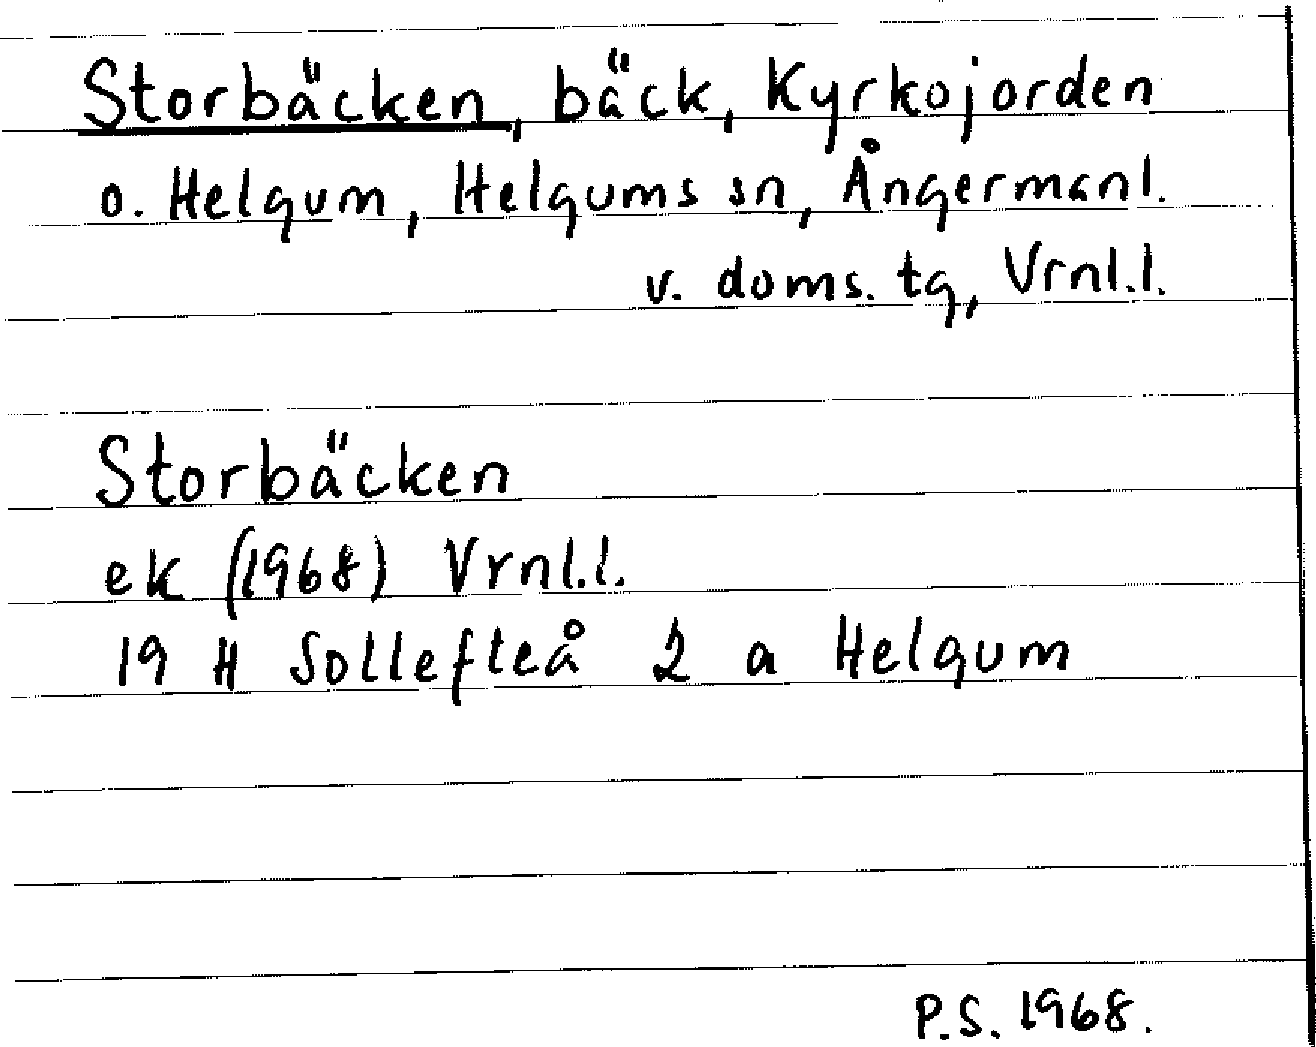 Storbäcken, bäck, Kyrkojorden
o. Helgum, Helgums sn, Ångermanl.
v. doms. tg, Vrnl.l.
Storbäcken
ek (1968) Vrnl.l.
19 H Sollefteå 2 a Helgum
P.S. 1968.